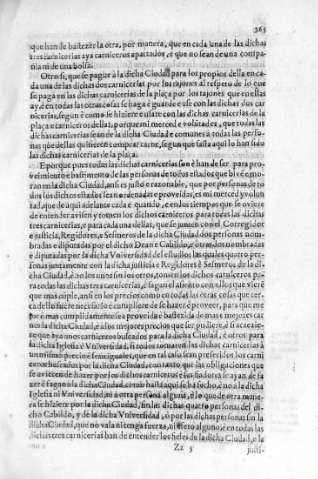 363
que han de bastezer la otra, por manera, que en cada una de las dichas
tres carnicerias aya carniceros apartados, é que no sean de una compa-
ñia ni de una bolsa.
Otro si, que se pague á la dicha Ciudad para los propios della en ca-
da una de las dichas dos carnicerias por los tajones al respeto de lo que
se paga en las dichas carnicerias de la plaça por los tajones que en ellas
ay, é en todas las otras cosas se haga é guarde é use con las dichas dos car
nicerias, segun é como se hiziere é usare con las dichas carnicerias de la
plaça é carniceros dellas, porque mi merced é voluntad es, que todas las
dichas carnicerias sean de la dicha Ciudad é comunes á todas las perso-
nas que dellas quisieren comprar carne, segun que fasta aquí lo han sido
las dichas carnicerias de la plaça.
E porque pues todas las dichas carnicerias son é han de ser para pro-
veimiento é bastimento de las personas de todos estados que bive é mo-
ran en la dicha Ciudad, assi es justo é razonable, que por personas de to
dos los dichos estados sean ordenadas é proveidas, es mi merced y volun
tad, que de aquí adelante cada é quando, é en los tiempos que se oviere
de entender aver en y tomen los dichos carniceros para todas las dichas
tres carnicerias, é para cada una dellas, que se junten con el Corregidor
é justicia, Regidores, é Sesmeros de la dicha Ciudad dos personas nom-
bradas é diputadas por el dicho Dean é Cabildo, é otras dos nombradas
é diputadas por la dicha Universidad del estudio, las quales quatro per-
sonas juntamente con la dicha justicia é Regidores é Sesmeros de la di-
cha Ciudad, é no los unos sin los otros, tomen los dichos carniceros pa-
ra todas las dichas tres carnicerias, é fagan el asiento con ellos que viere
que mas cumple, assi en los precios como en todas las otras cosas que cer-
ca dello fuere necessario é cumplidero de se hazer é proveer, para que me
jor é mas cumplidamente sea proveida é bastezida de mas é mejores car
nes la dicha Ciudad, é á los mejores precios que ser pudiere, é si acaecie-
re que aya unos carniceros buscados para la dicha Ciudad, é otros para
la dicha Iglesia é Universidad, si todos tomaren las dichas carnicerias á
un mismo precio é sean iguales, que en tal caso sean preferidos los carni
ceros buscados por la dicha Ciudad, con tanto que las obligaciones que
se ovieren de hazer por los dichos carniceros é sus fiadores se ayan de fa
zer é fagan á la dicha Ciudad, como hasta aquí se ha fecho, é no á la dicha
Iglesia ni Universidad, ni á otra persona alguna, é lo que de otra mane-
ra se hiziere por la dicha Ciudad, sin las dichas quatro personas del di-
cho Cabildo, y de la dicha Universidad, ó por las dichas personas sin la
dicha Ciudad, que no vala ni tenga fuerza, ni efeto alguno, é en todas las
dichas tres carnicerias han de entender los fieles de la dicha Ciudad, é la
Zz 5
justi-